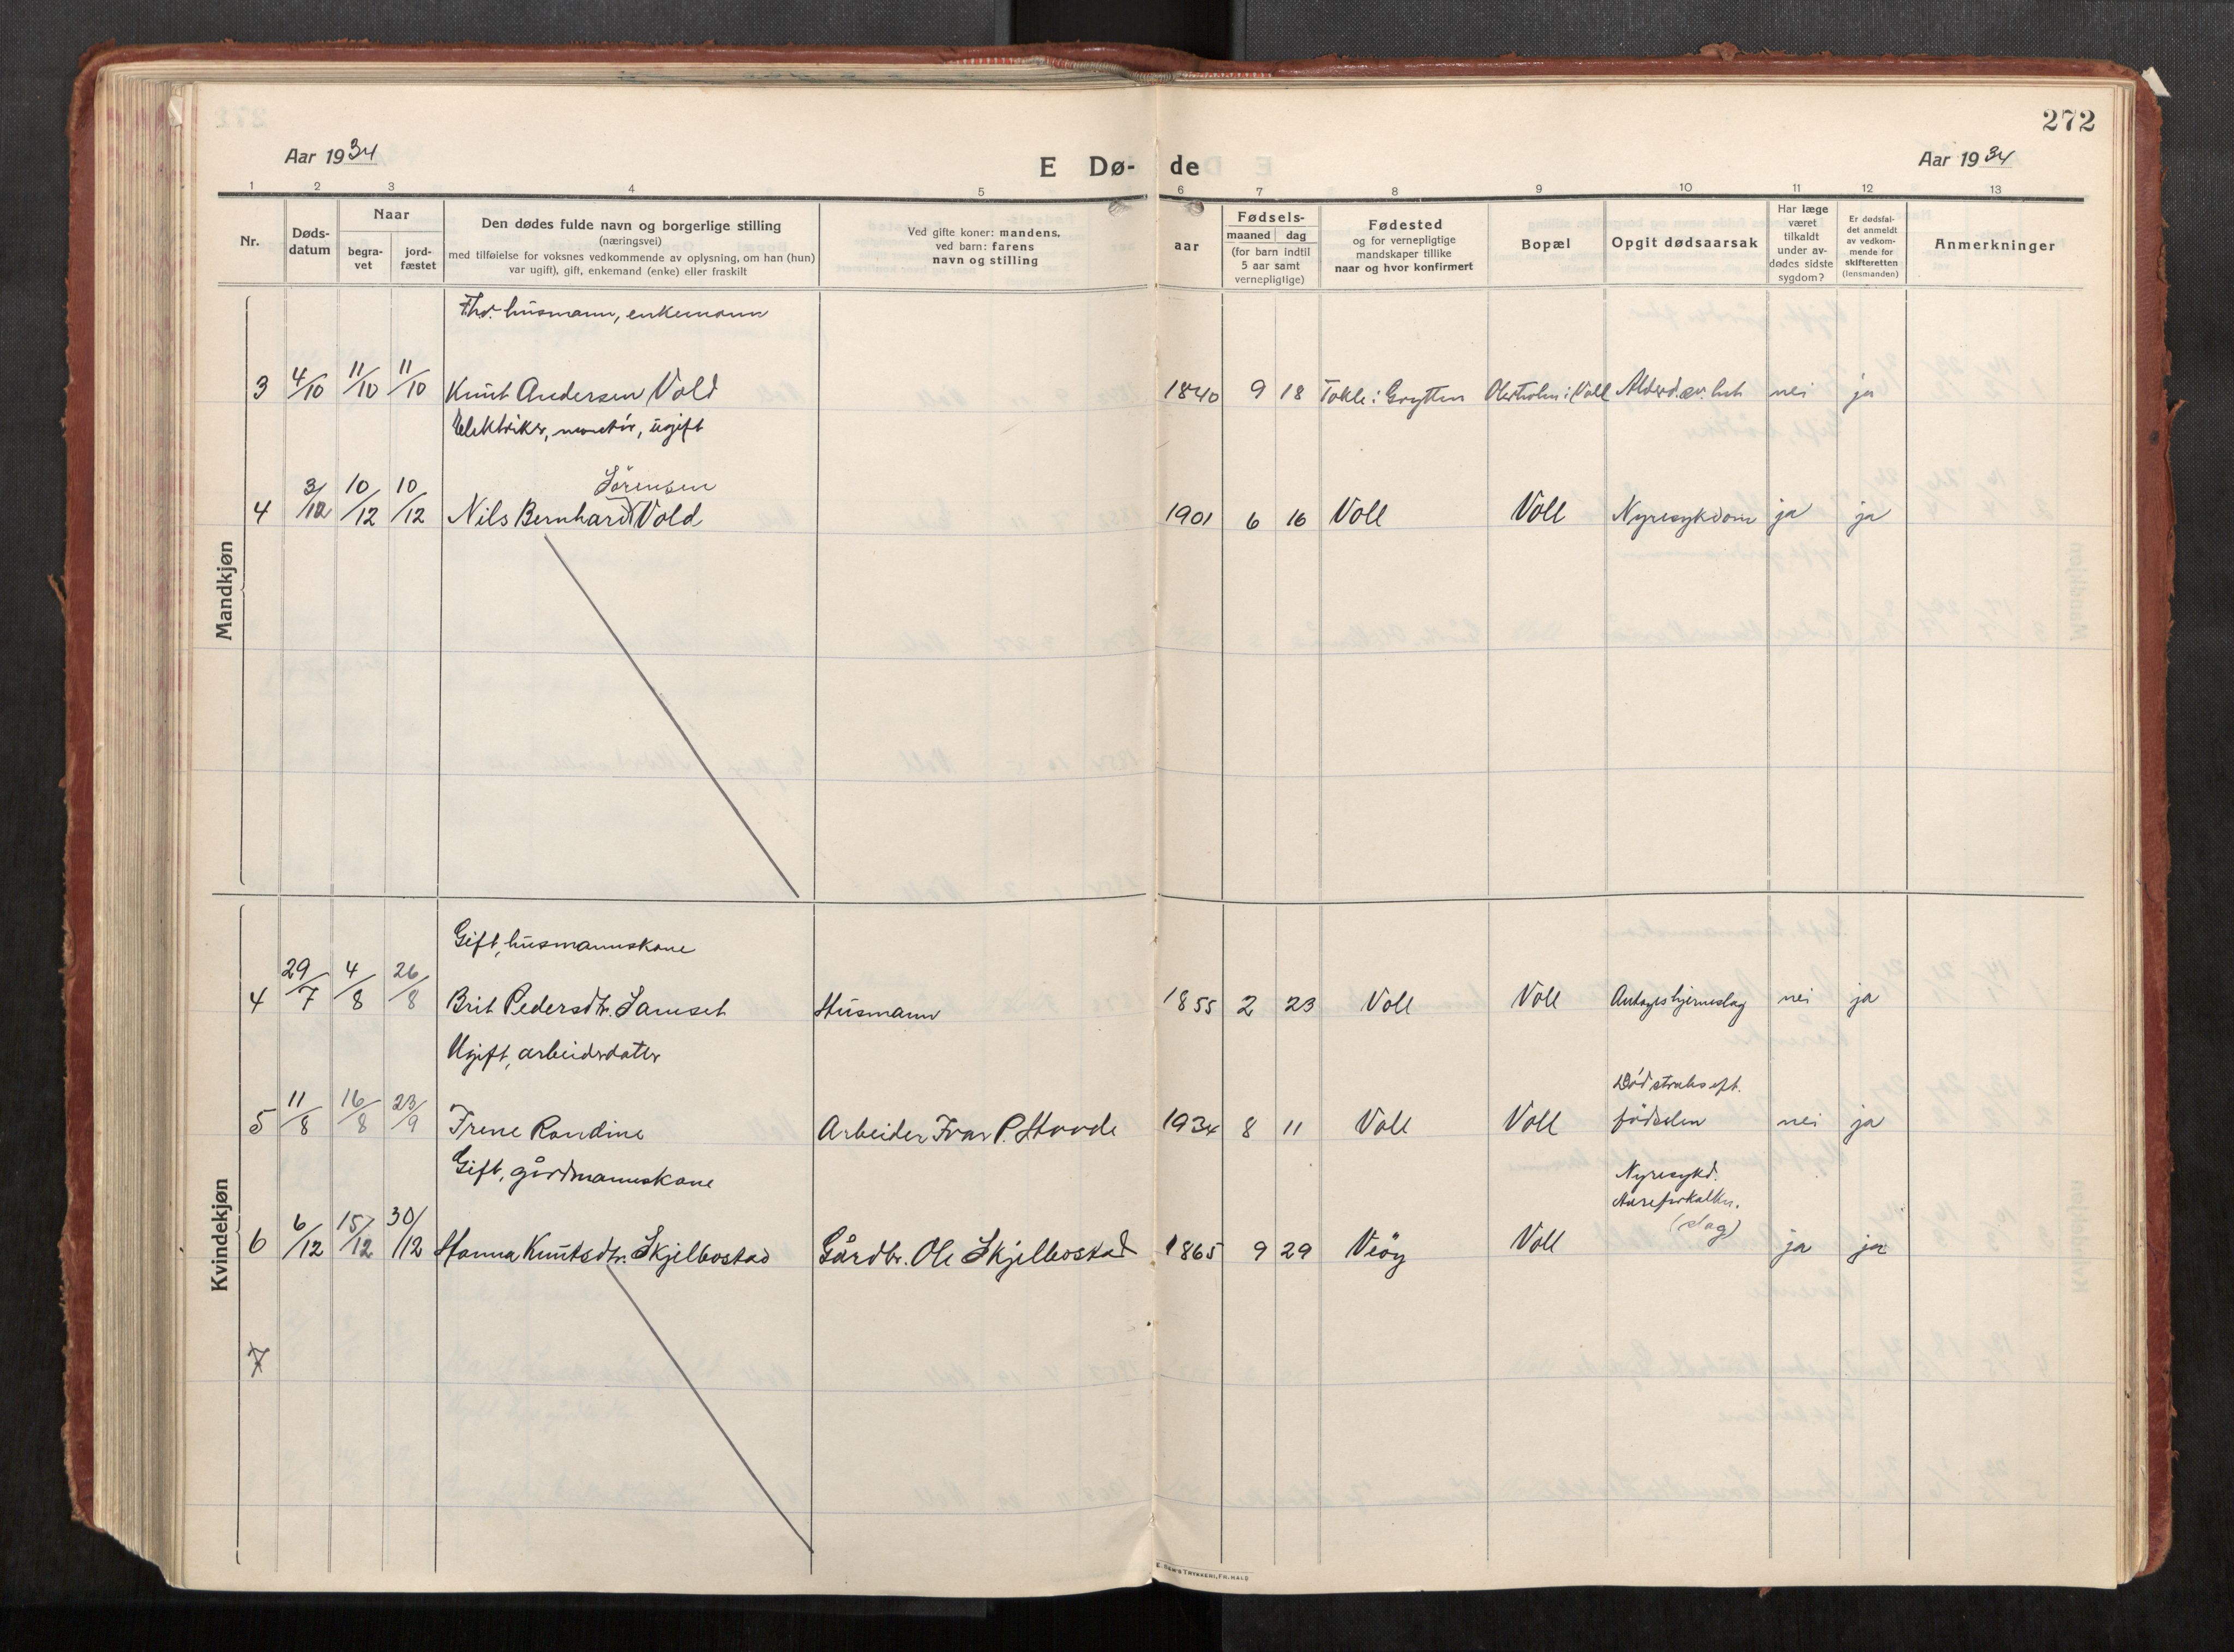 272
Aar 1934
E Dø-de
Aar 1934
1 2 3 4 5 6 7 8 9 10 11 12 13
Nr.
Døds-
datum
Naar
begra-
vet
jord-
fæstet
Den dødes fulde navn og borgerlige stilling
(næringsvei)
med tilføielse for voksnes vedkommende av oplysning, om han (hun)
var ugift), gift, enkemand (enke) eller fraskilt
Ved gifte koner: mandens,
ved barn: farens
navn og stilling
aar
Fødsels-
maaned dag
(for barn indtil
5 aar samt
vernepligtige)
Fødested
og for vernepligtige
mandskaper tillike
naar og hvor konfirmert
Bopæl
Opgit dødsaarsak
Har læge
været
tilkaldt
under av-
dødes sidste
sygdom?
Er dødsfal-
det anmeldt
av vedkom-
mende for
skifteretten
(lensmanden)
Anmerkninger
Mandkjøn
Fhv. husmann, enkemann
3 4/10 11/10 11/10 Knut Andersen Vold 1840 9 18 Tokle i Grytten i Voll nei ja
Elektriker, montør, ugift
Sörensen
4 3/12 10/12 10/12 Nils Bernhard Vold 1901 6 16 Voll Voll Nyresykdom ja ja
Kvindekjøn
Gift, husmannskone
4 29/7 4/8 26/8 Brit Pedersdtr. Samset Husmann 1855 2 23 Voll Voll Antagis hjerneslag nei ja
Ugift, arbeidsdatter
Död straks eft.
5 11/8 16/8 23/9 Irene Randine Arbeider Ivar P. Hovde 1934 8 11 Voll Voll födselen nei ja
Gift, gårdmannskone
Nyresykd.
Aareforkalkn.
(slag)
6 6/12 15/12 30/12 Hanna Knutsdtr. Skjelbostad Gårdbr. Ole Skjelbostad 1865 9 29 Veöy Voll ja ja
7